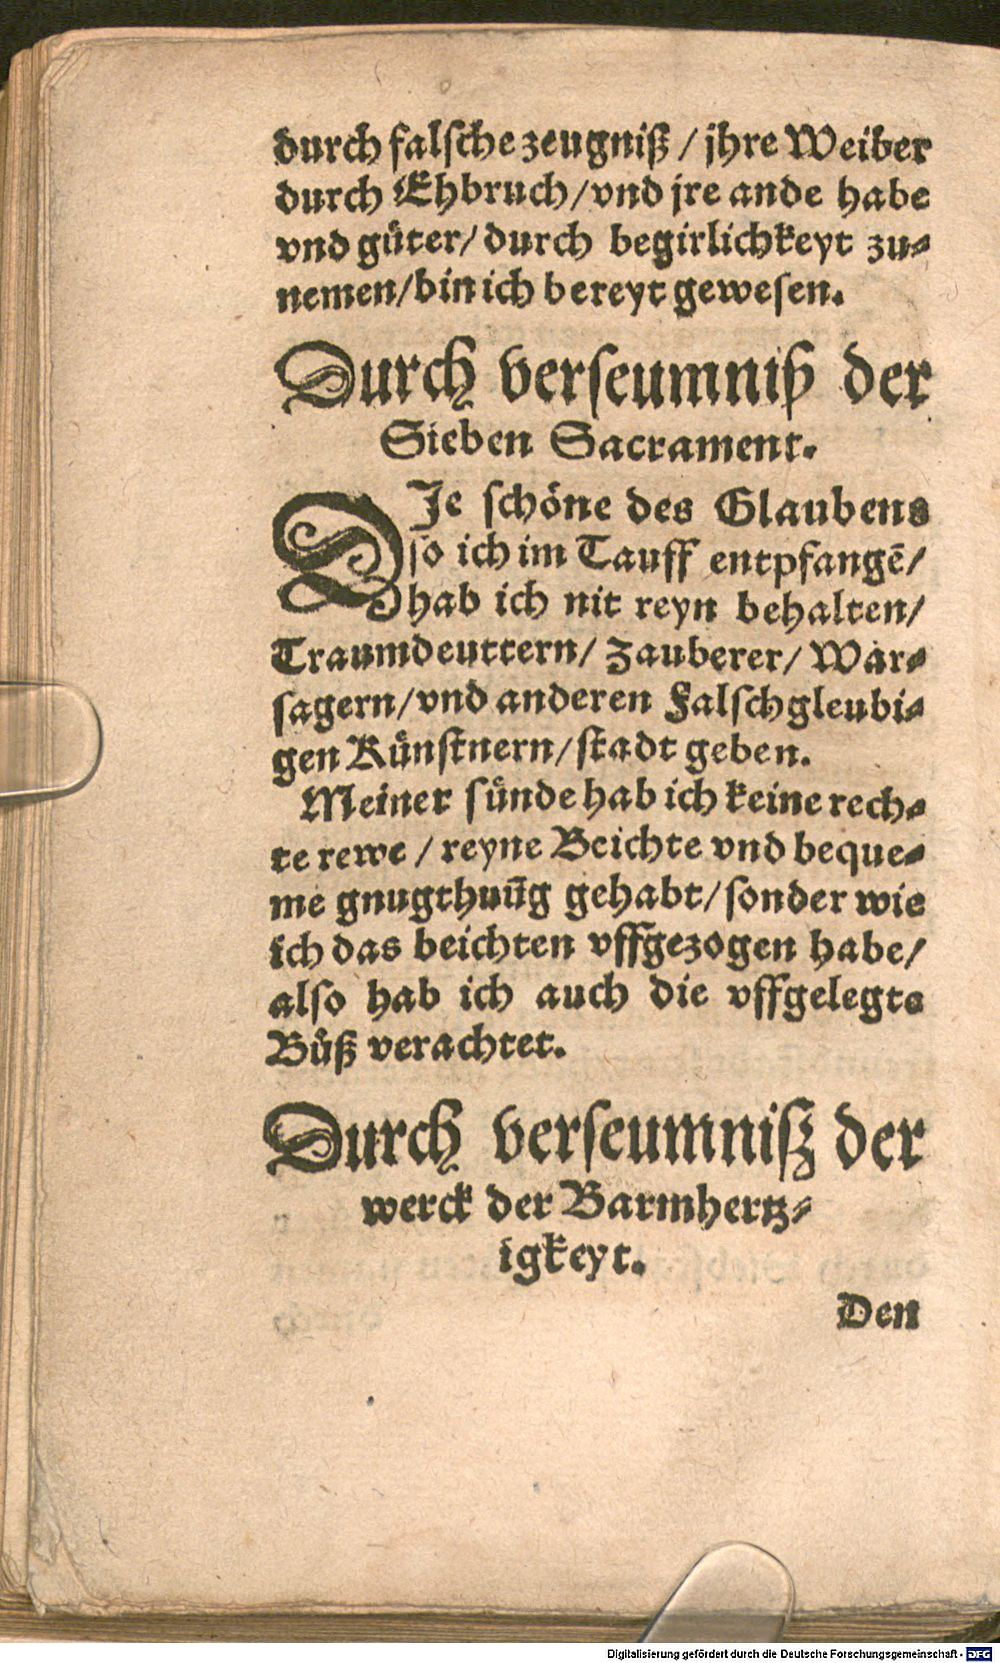 durch falsche zeugniß / jhre Weiber
durch Ehbruch / vnd jre ande habe
vnd güter / durch begirlichkeyt zu-
nemen / bin ich bereyt gewesen.
Durch verseumniß der
Sieben Sacrament.
DJe schöne des Glaubens
so ich im Tauff entpfangē /
hab ich nit reyn behalten /
Traumdeuttern / Zauberer / War-
sagern / vnd anderen Falschgleubi-
gen Künstnern / stadt geben.
Meiner sünde hab ich keine rech-
te rewe / reyne Beichte vnd beque-
me gnugthuūg gehabt / sonder wie
ich das beichten vffgezogen habe /
also hab ich auch die vffgelegte
Büß verachtet.
Durch verseumnisz der
werck der Barmhertz-
igkeyt.
Den
Digitalisierung gefördert durch die Deutsche Forschungsgemeinschaft - DFG